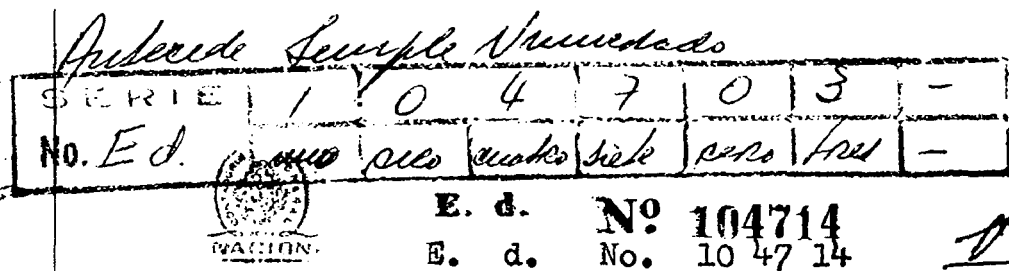 Antecede Simple Numerado
SERIE 1 0 4 7 0 3 -
No. Ed. uno cero cuatro siete cero tres -
NACION
E. d. Nº 104714
E. d. No. 10 47 14